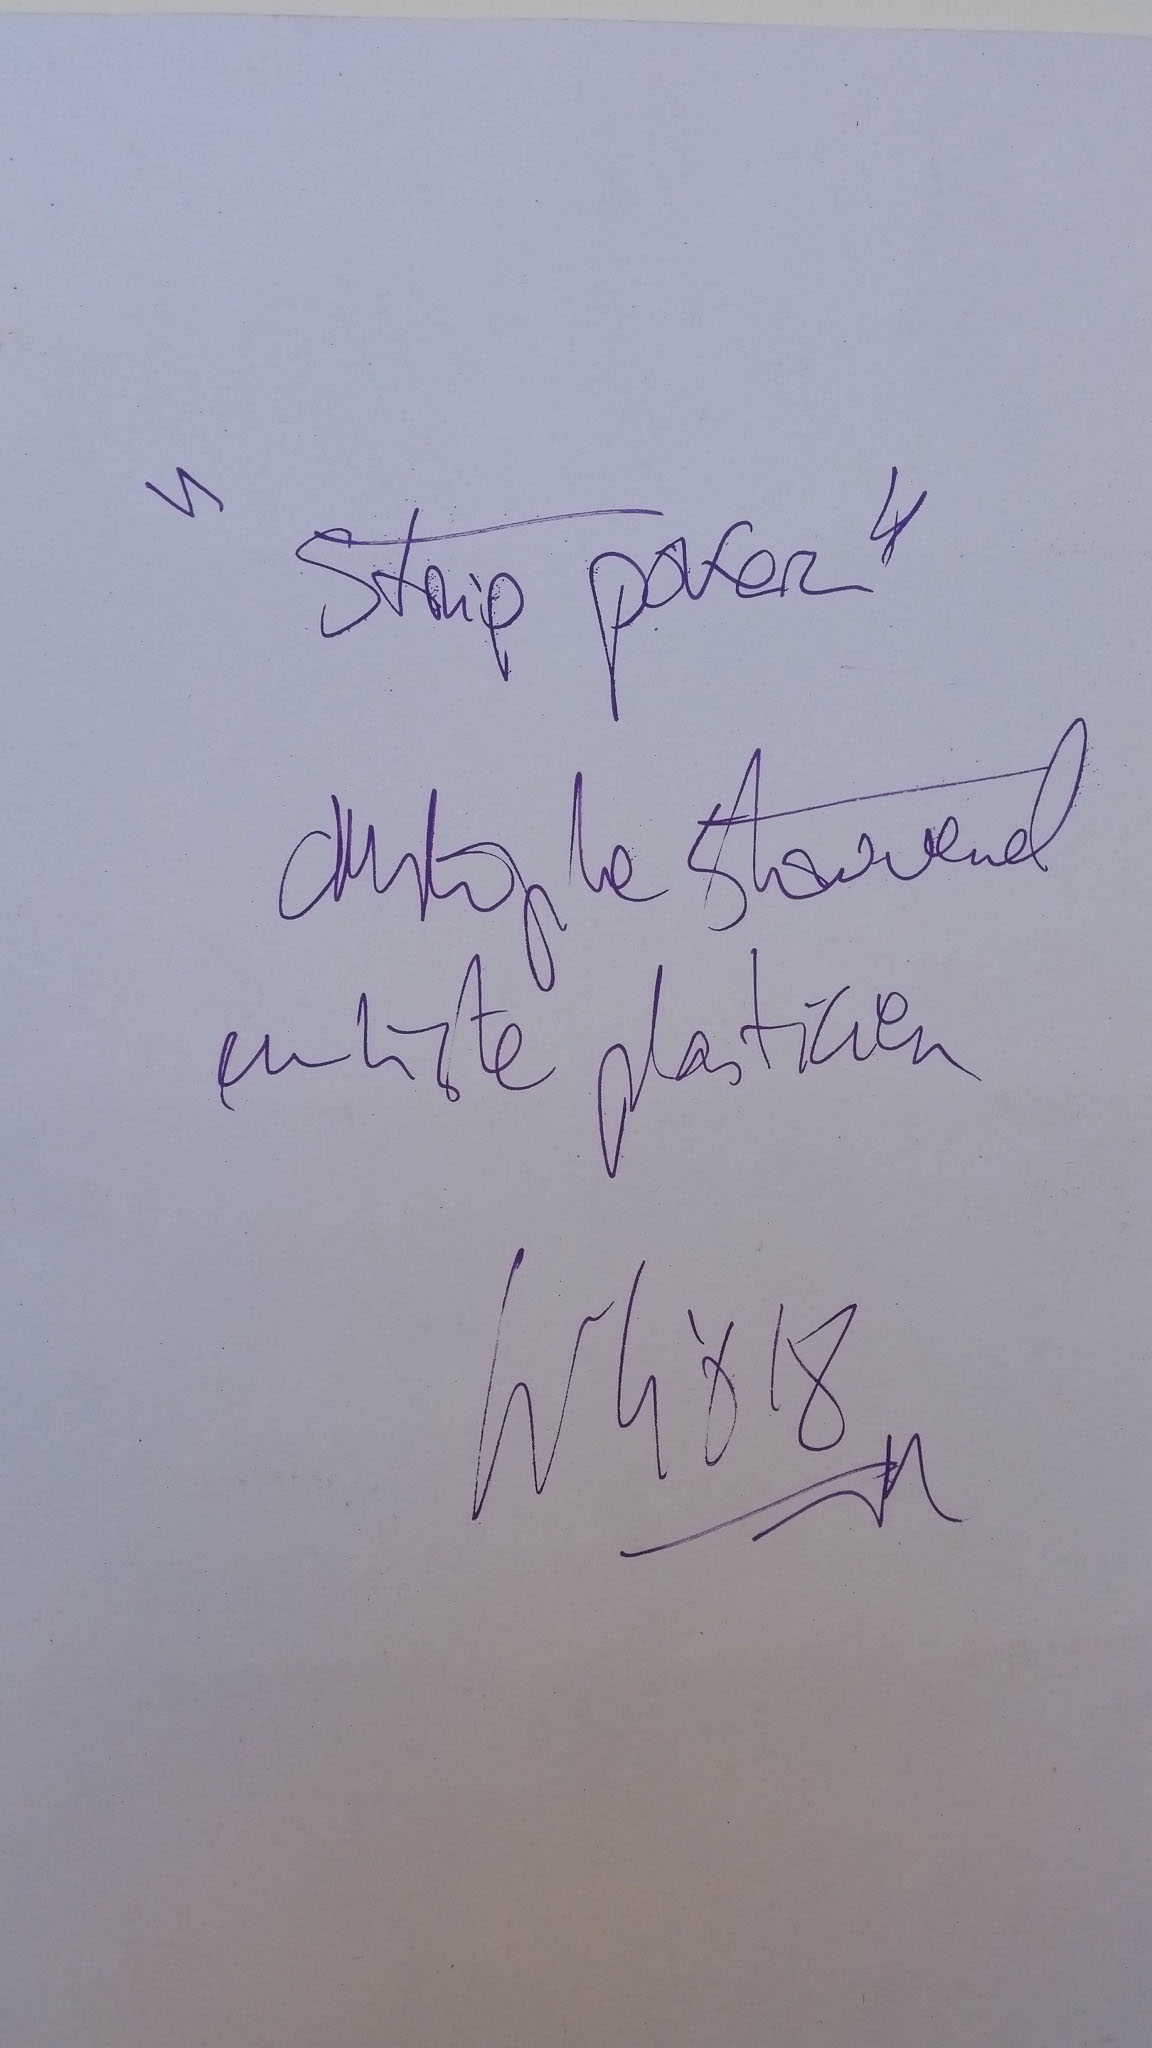 "Strip poker"
christophe stawend
artiste plasticien